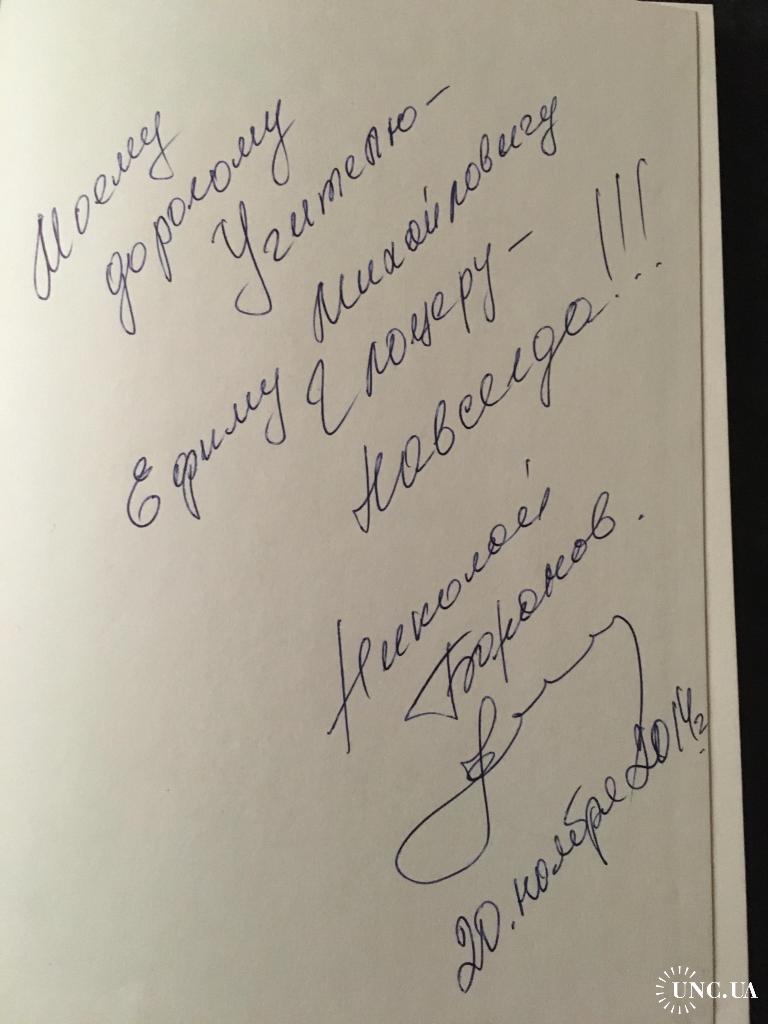 Моему
дорогому
Учителю-
Ефиму Михайловичу
Глоцеру-
Навсегда!!!
Николай
Баранов.
20. ноября 2014г
UNC.UA